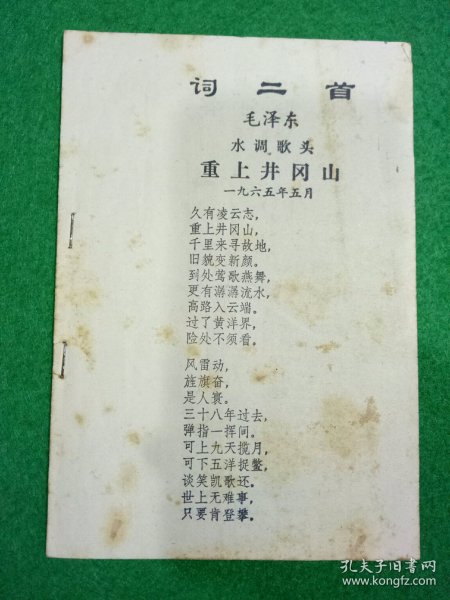 词二首
毛泽东
水调歌头
重上井冈山
一九六五年五月
久有凌云志，
重上井冈山，
千里来寻故地，
旧貌变新颜。
到处莺歌燕舞，
更有潺潺流水，
高路入云端。
过了黄洋界，
险处不须看。
风雷动，
旌旗奋，
是人寰。
三十八年过去，
弹指一挥间。
可上九天揽月，
可下五洋捉鳖，
谈笑凯歌还。
世上无难事，
只要肯登攀。
孔夫子旧书网
www.kongfz.com